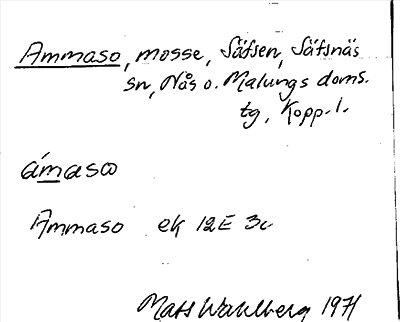 Ammaso, mosse, Säfsen, Säfsnäs
sn, Nås o. Malungs doms.
tg, Kopp. l.
ámasω
Ammaso ek 12E 3c
Mats Wahlberg 1971